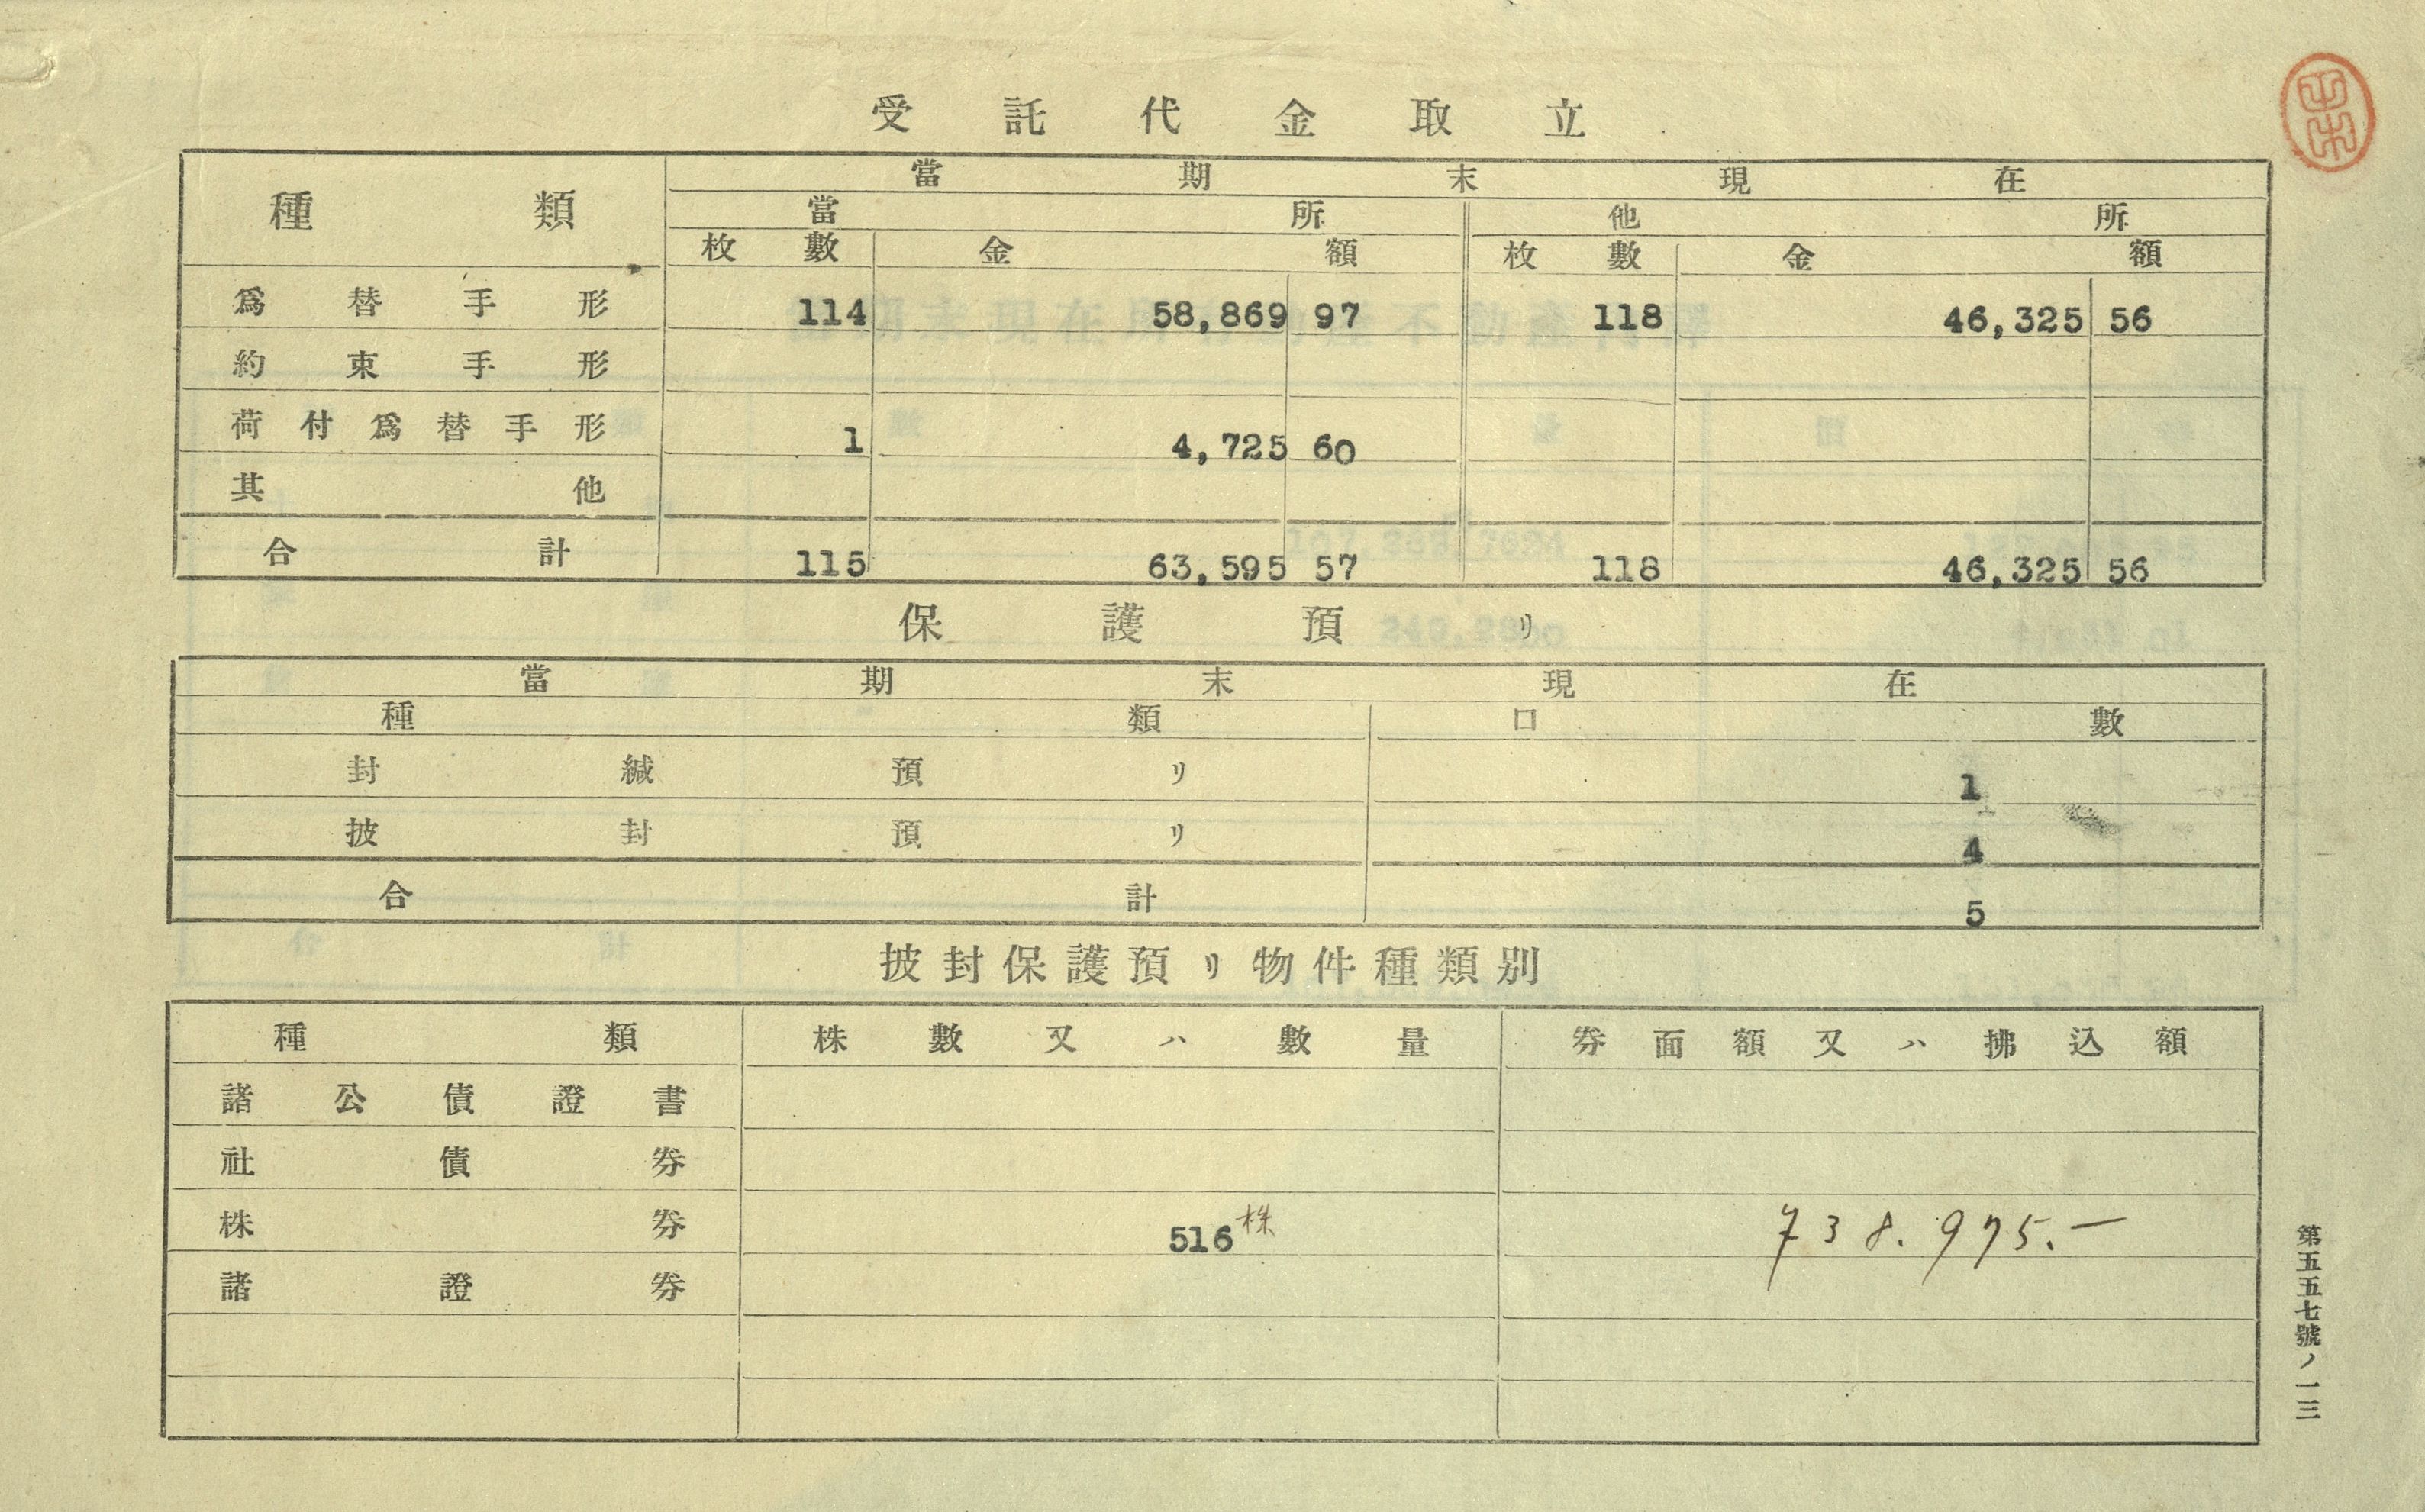 受託代金取立
種類 當期末現在
當所 他所
枚數 金額 枚數 金額
爲替手形 114 58,869 97 118 46,325 56
約束手形
荷付爲替手形 1 4,725 60
其他
合計 115 63,595 57 118 46,325 56
保護預リ
當期末現在
種類 口數
封緘預リ 1
披封預リ 4
合計 5
披封保護預リ物件種類別
種類 株數又ハ數量 券面額又ハ拂込額
諸公債證書
社債券
株券 516株 738.975.—
諸證券
第五五七號ノ一三